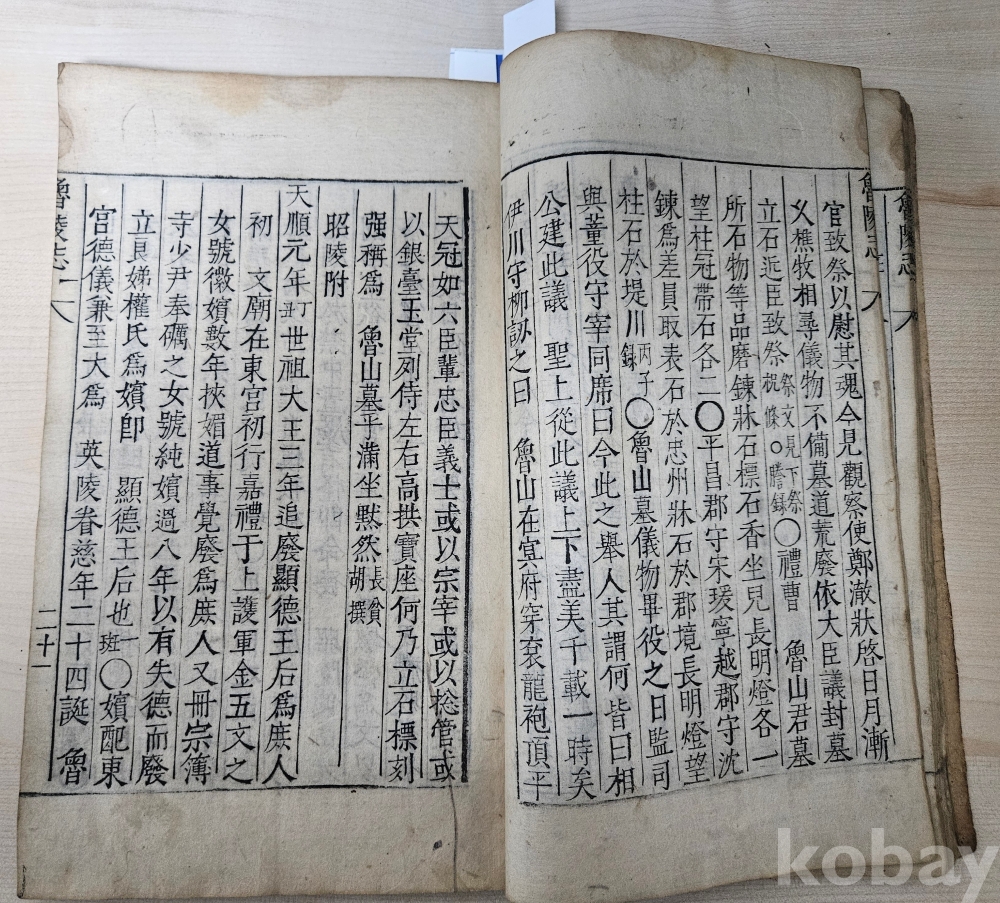 官致祭以慰其魂今見觀察使鄭澈狀啓日月漸
乆樵牧相尋儀物不備墓道荒廢依大臣議封墓
立石近臣致祭祭文見下祭祝條○謄錄○禮曹 魯山君墓
所石物等品磨鍊牀石標石香坐兒長明燈各一
望柱冠帶石各二○平昌郡守宋瑗寧越郡守沈
鍊爲差員取表石於忠州牀石於郡境長明燈望
柱石於堤川丙子錄○魯山墓儀物畢役之日監司
與董役守宰同席曰今此之舉人其謂何皆曰相
公建此議 聖上從此議上下盡美千載一時矣
伊川守柳詠之曰 魯山在㝠府穿衮龍袍頂平
天冠如六臣輩忠臣義士或以宗宰或以捴管或
以銀臺玉堂列侍左右高拱寶座何乃立石標刻
强稱爲 魯山墓平滿坐默然長貧胡撰
昭陵附
天順元年丁丑世祖大王三年追廢顯德王后爲庶人
初 文廟在東宮初行嘉禮于上護軍金五文之
女號徽嬪數年挾媚道事覺廢爲庶人又冊宗簿
寺少尹奉礪之女號純嬪過八年以有失德而廢
立良娣權氏爲嬪卽 顯德王后也一班○嬪配東
宮德儀兼至大爲 英陵眷慈年二十四誕 魯
魯陵志 一
二十一
魯陵志
魯陵志
kobay